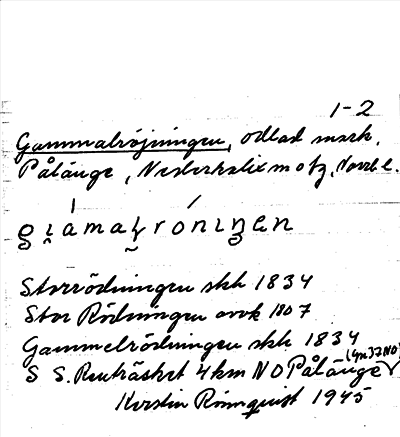 1-2
Gammalröjningen, odlad mark,
Pålänge, Nederkalix m o tg, Norrb l.
Storrödningen skh 1834
Stor Rödningen avvk 1807
Gammelrödningen skh 1834
S S. Renträsket 4 km NO Pålänge
Kerstin Rönnquist 1945